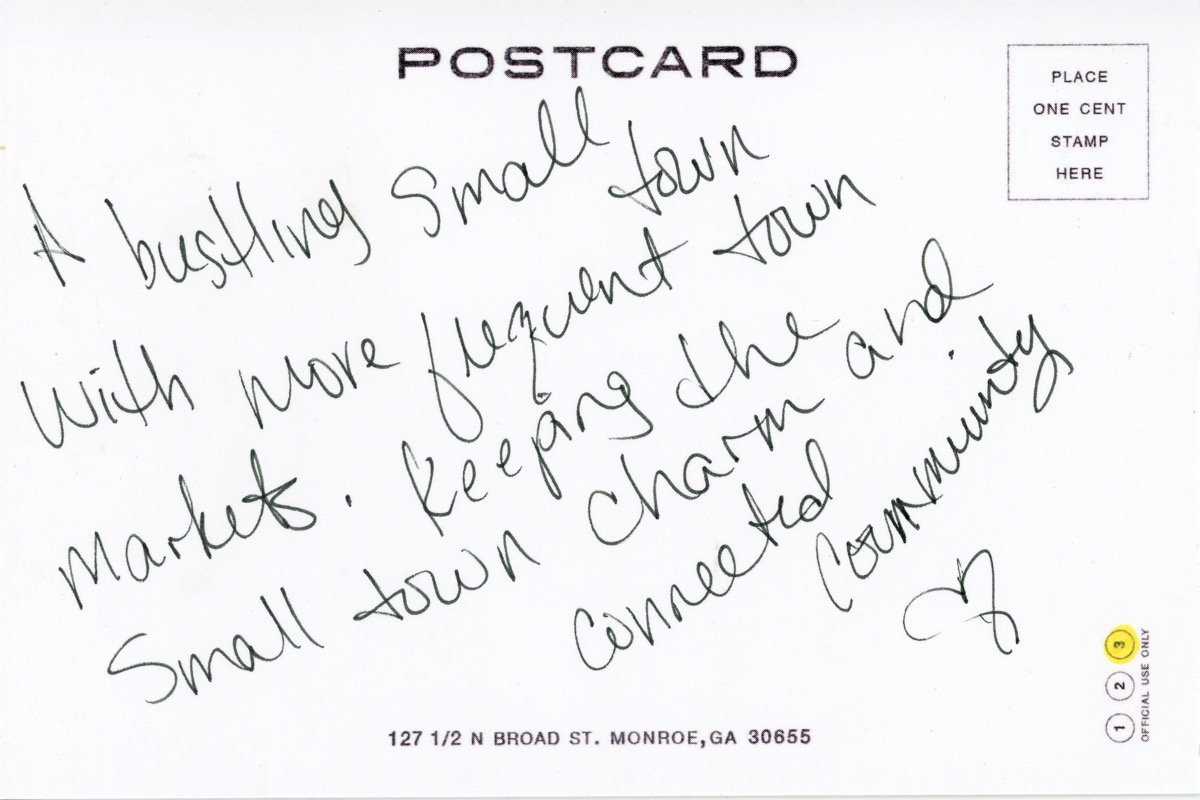 POSTCARD
PLACE
ONE CENT
STAMP
HERE
A bustling small town
with more frequent town
markets. Keeping the
small town charm and
connected community
127 1/2 N BROAD ST. MONROE, GA 30655
1 2 3
OFFICIAL USE ONLY